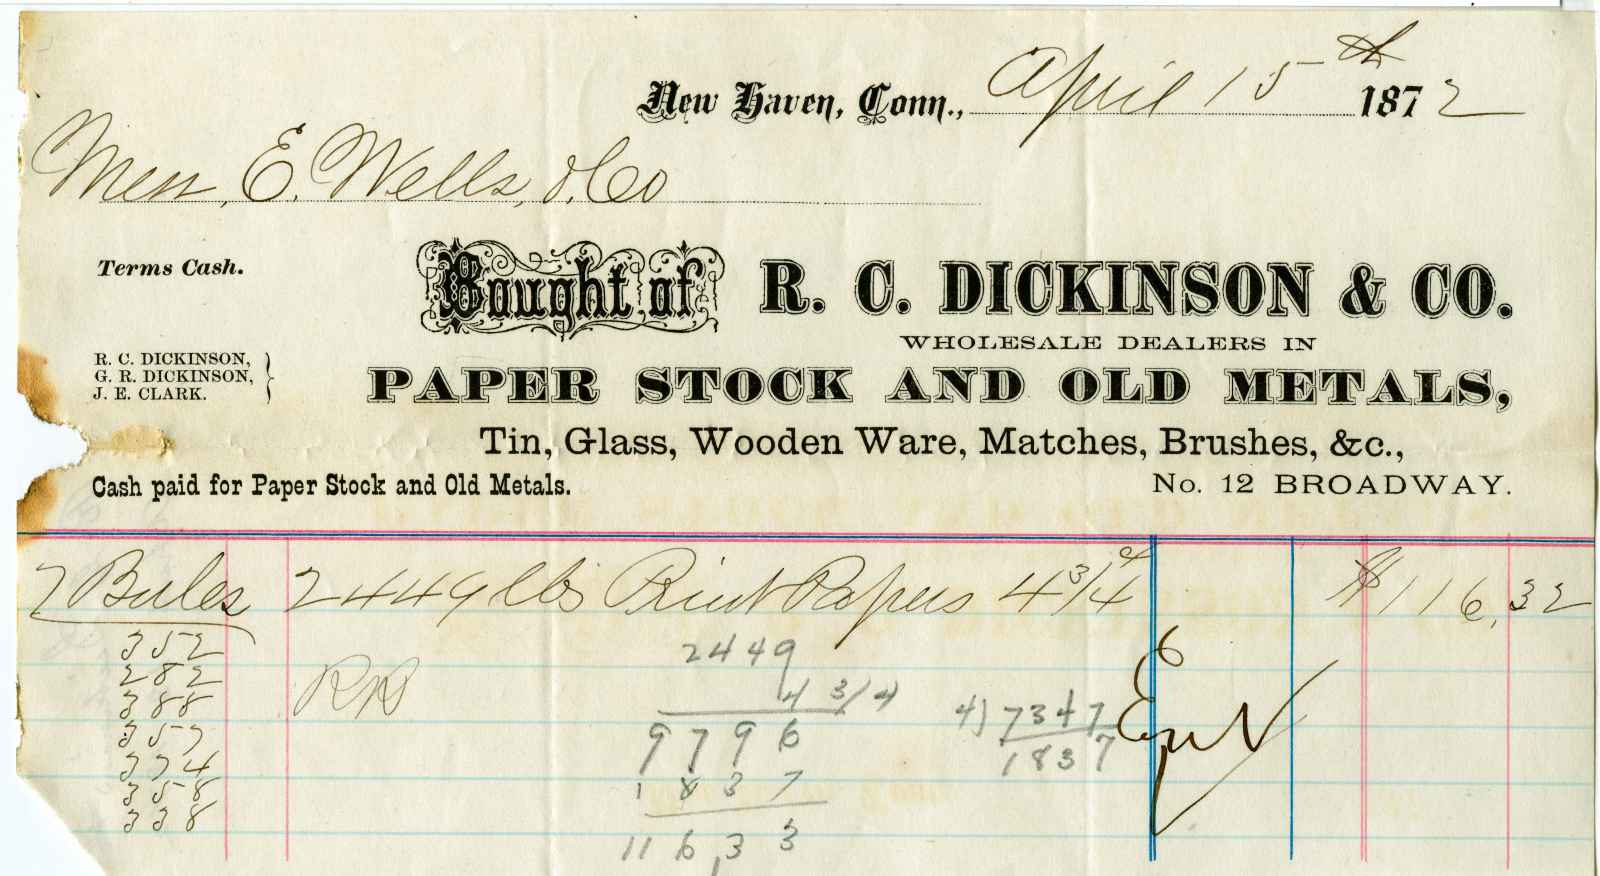 New Haven, Conn., April 15th 1872
Mess. E. Wells, & Co
Terms Cash.
Bought of R. C. DICKINSON & CO.
WHOLESALE DEALERS IN
R. C. DICKINSON,
G. R. DICKINSON,
J. E. CLARK.
PAPER STOCK AND OLD METALS,
Tin, Glass, Wooden Ware, Matches, Brushes, &c.,
Cash paid for Paper Stock and Old Metals.
No. 12 BROADWAY.
7 Bales 2449 lbs Print Papers 4 3/4 ¢ $116,32
352
282
388
357
374
358
338
RR
2449
4 3/4
9796
1837
116,33
4) 7347
1837